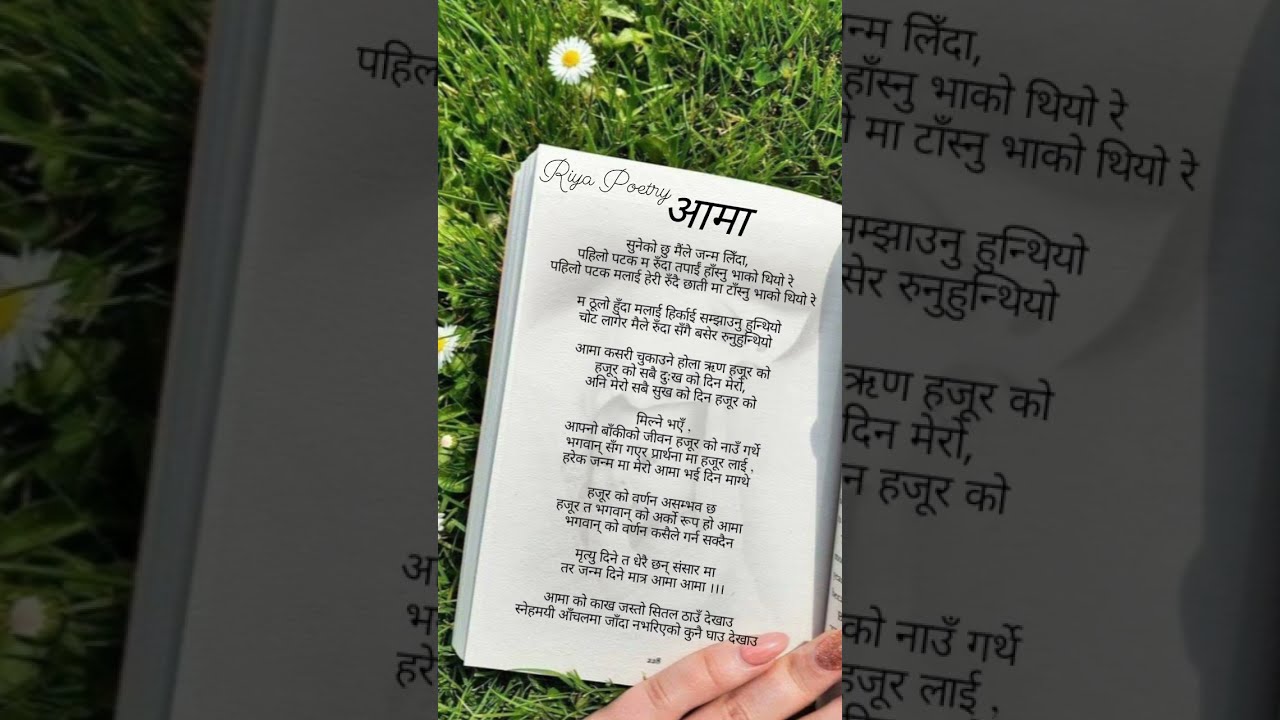 Riya Poetry
आमा
सुनेको छु मैंले जन्म लिँदा,
पहिलो पटक म रुँदा तपाईं हाँस्नु भाको थियो रे
पहिलो पटक मलाई हेरी रुँदै छाती मा टाँस्नु भाको थियो रे
म ठूलो हुँदा मलाई हिर्काई सम्झाउनु हुन्थियो
चोट लागेर मैले रुँदा सँगै बसेर रुनुहुन्थियो
आमा कसरी चुकाउने होला ऋण हजूर को
हजूर को सबै दुःख को दिन मेरो,
अनि मेरो सबै सुख को दिन हजूर को
मिल्ने भएँ ,
आफ्नो बाँकीको जीवन हजूर को नाउँ गर्थे
भगवान् सँग गएर प्रार्थना मा हजूर लाई ,
हरेक जन्म मा मेरो आमा भई दिन माग्थे
हजूर को वर्णन असम्भव छ
हजूर त भगवान् को अर्को रूप हो आमा
भगवान् को वर्णन कसैले गर्न सक्दैन
मृत्यु दिने त धेरै छन् संसार मा
तर जन्म दिने मात्र आमा आमा ।।।
आमा को काख जस्तो सितल ठाउँ देखाउ
स्नेहमयी आँचलमा जाँदा नभरिएको कुनै घाउ देखाउ
228
पहिल
न्म लिँदा,
हाँस्नु भाको थियो रे
मा टाँस्नु भाको थियो रे
सम्झाउनु हुन्थियो
सेर रुनुहुन्थियो
ऋण हजूर को
दिन मेरो,
न हजूर को
को नाउँ गर्थे
हजूर लाई ,
हरे